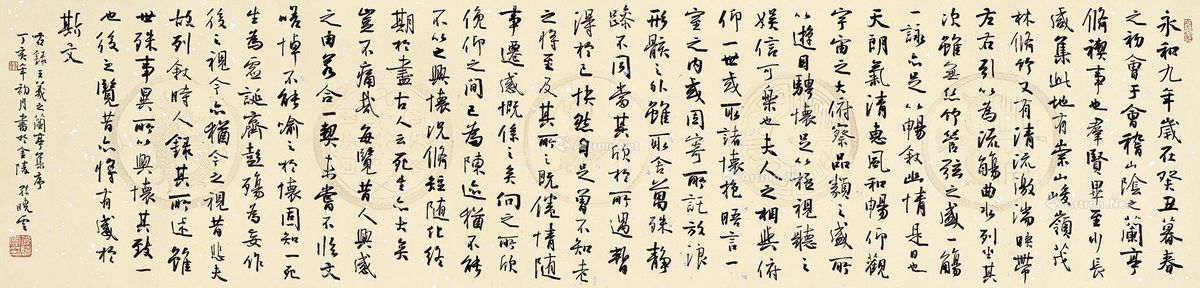 永和九年歲在癸丑暮春
之初會于會稽山陰之蘭亭
脩禊事也羣賢畢至少長
咸集此地有崇山峻嶺茂
林脩竹又有清流激湍映帶
左右引以為流觴曲水列坐其
次雖無絲竹管弦之盛一觴
一詠亦足以暢敘幽情是日也
天朗氣清惠風和暢仰觀
宇宙之大俯察品類之盛所
以遊目騁懷足以極視聽
娛信可樂也夫人之相與俯
仰一世或取諸懷抱晤言一
室之內或因寄所託放浪
形骸之外雖取舍萬殊靜
躁不同當其欣於所遇暫
得於己快然自足曾不知老
之將至及其所之既倦情隨
事遷感慨係之矣向之所欣
俛仰之間已為陳迹猶不能
不以之興懷況脩短隨化終
期於盡古人云死生亦大矣
豈不痛哉每覽昔人興感
之由若合一契未嘗不臨文
嗟悼不能喻之於懷固知一死
生為虛誕齊彭殤為妄作
後之視今亦猶今之視昔悲夫
故列敘時人錄其所述雖
世殊事異所以興懷其致一
也後之覽者亦將有感於
斯文
右錄王羲之蘭亭集序
丁亥年初月書於金陵 孫曉雲